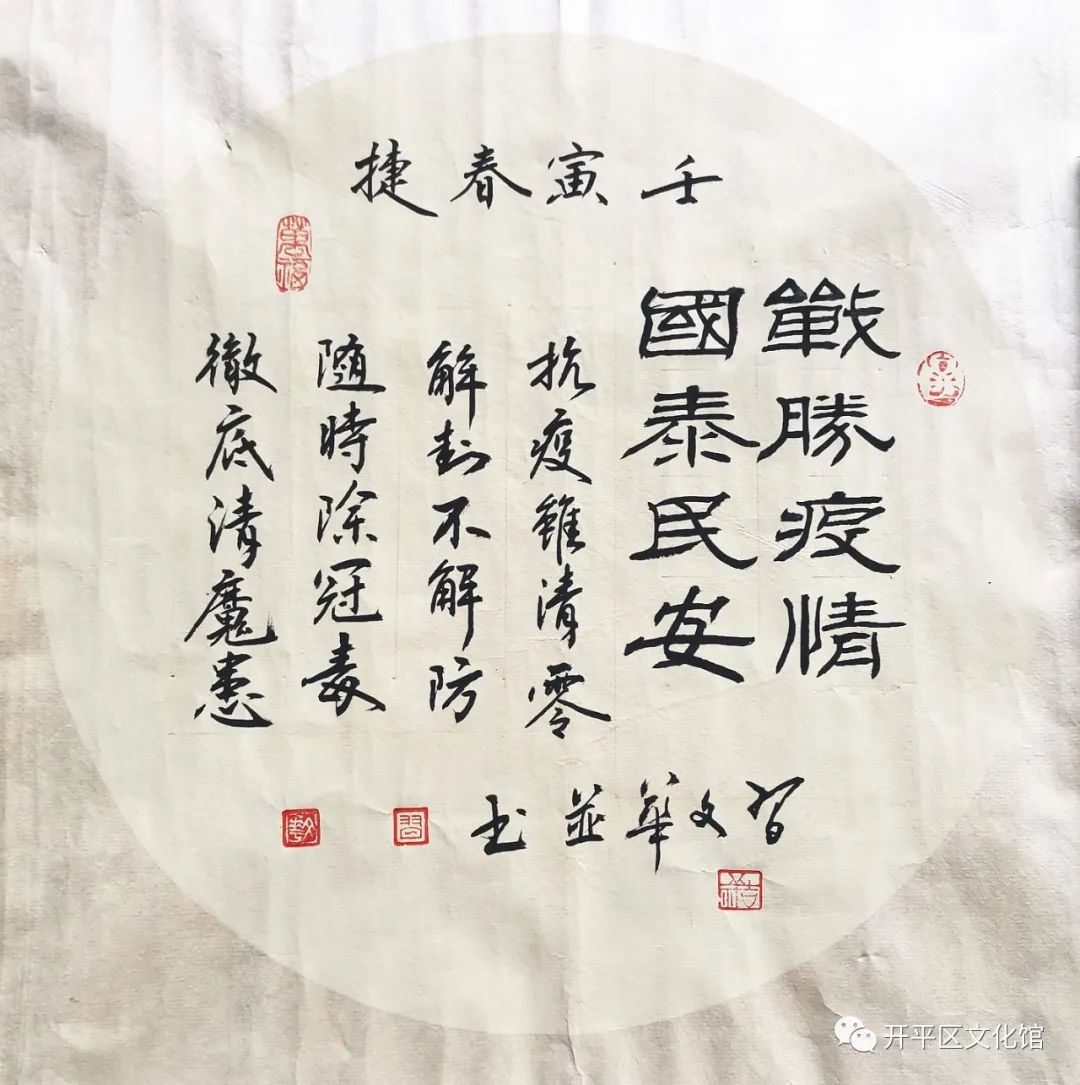 壬寅春捷
戰勝疫情
國泰民安
抗疫雖清零
解封不解防
随時除冠毒
徹底清魔患
習文華並书
萬福
開平区文化馆